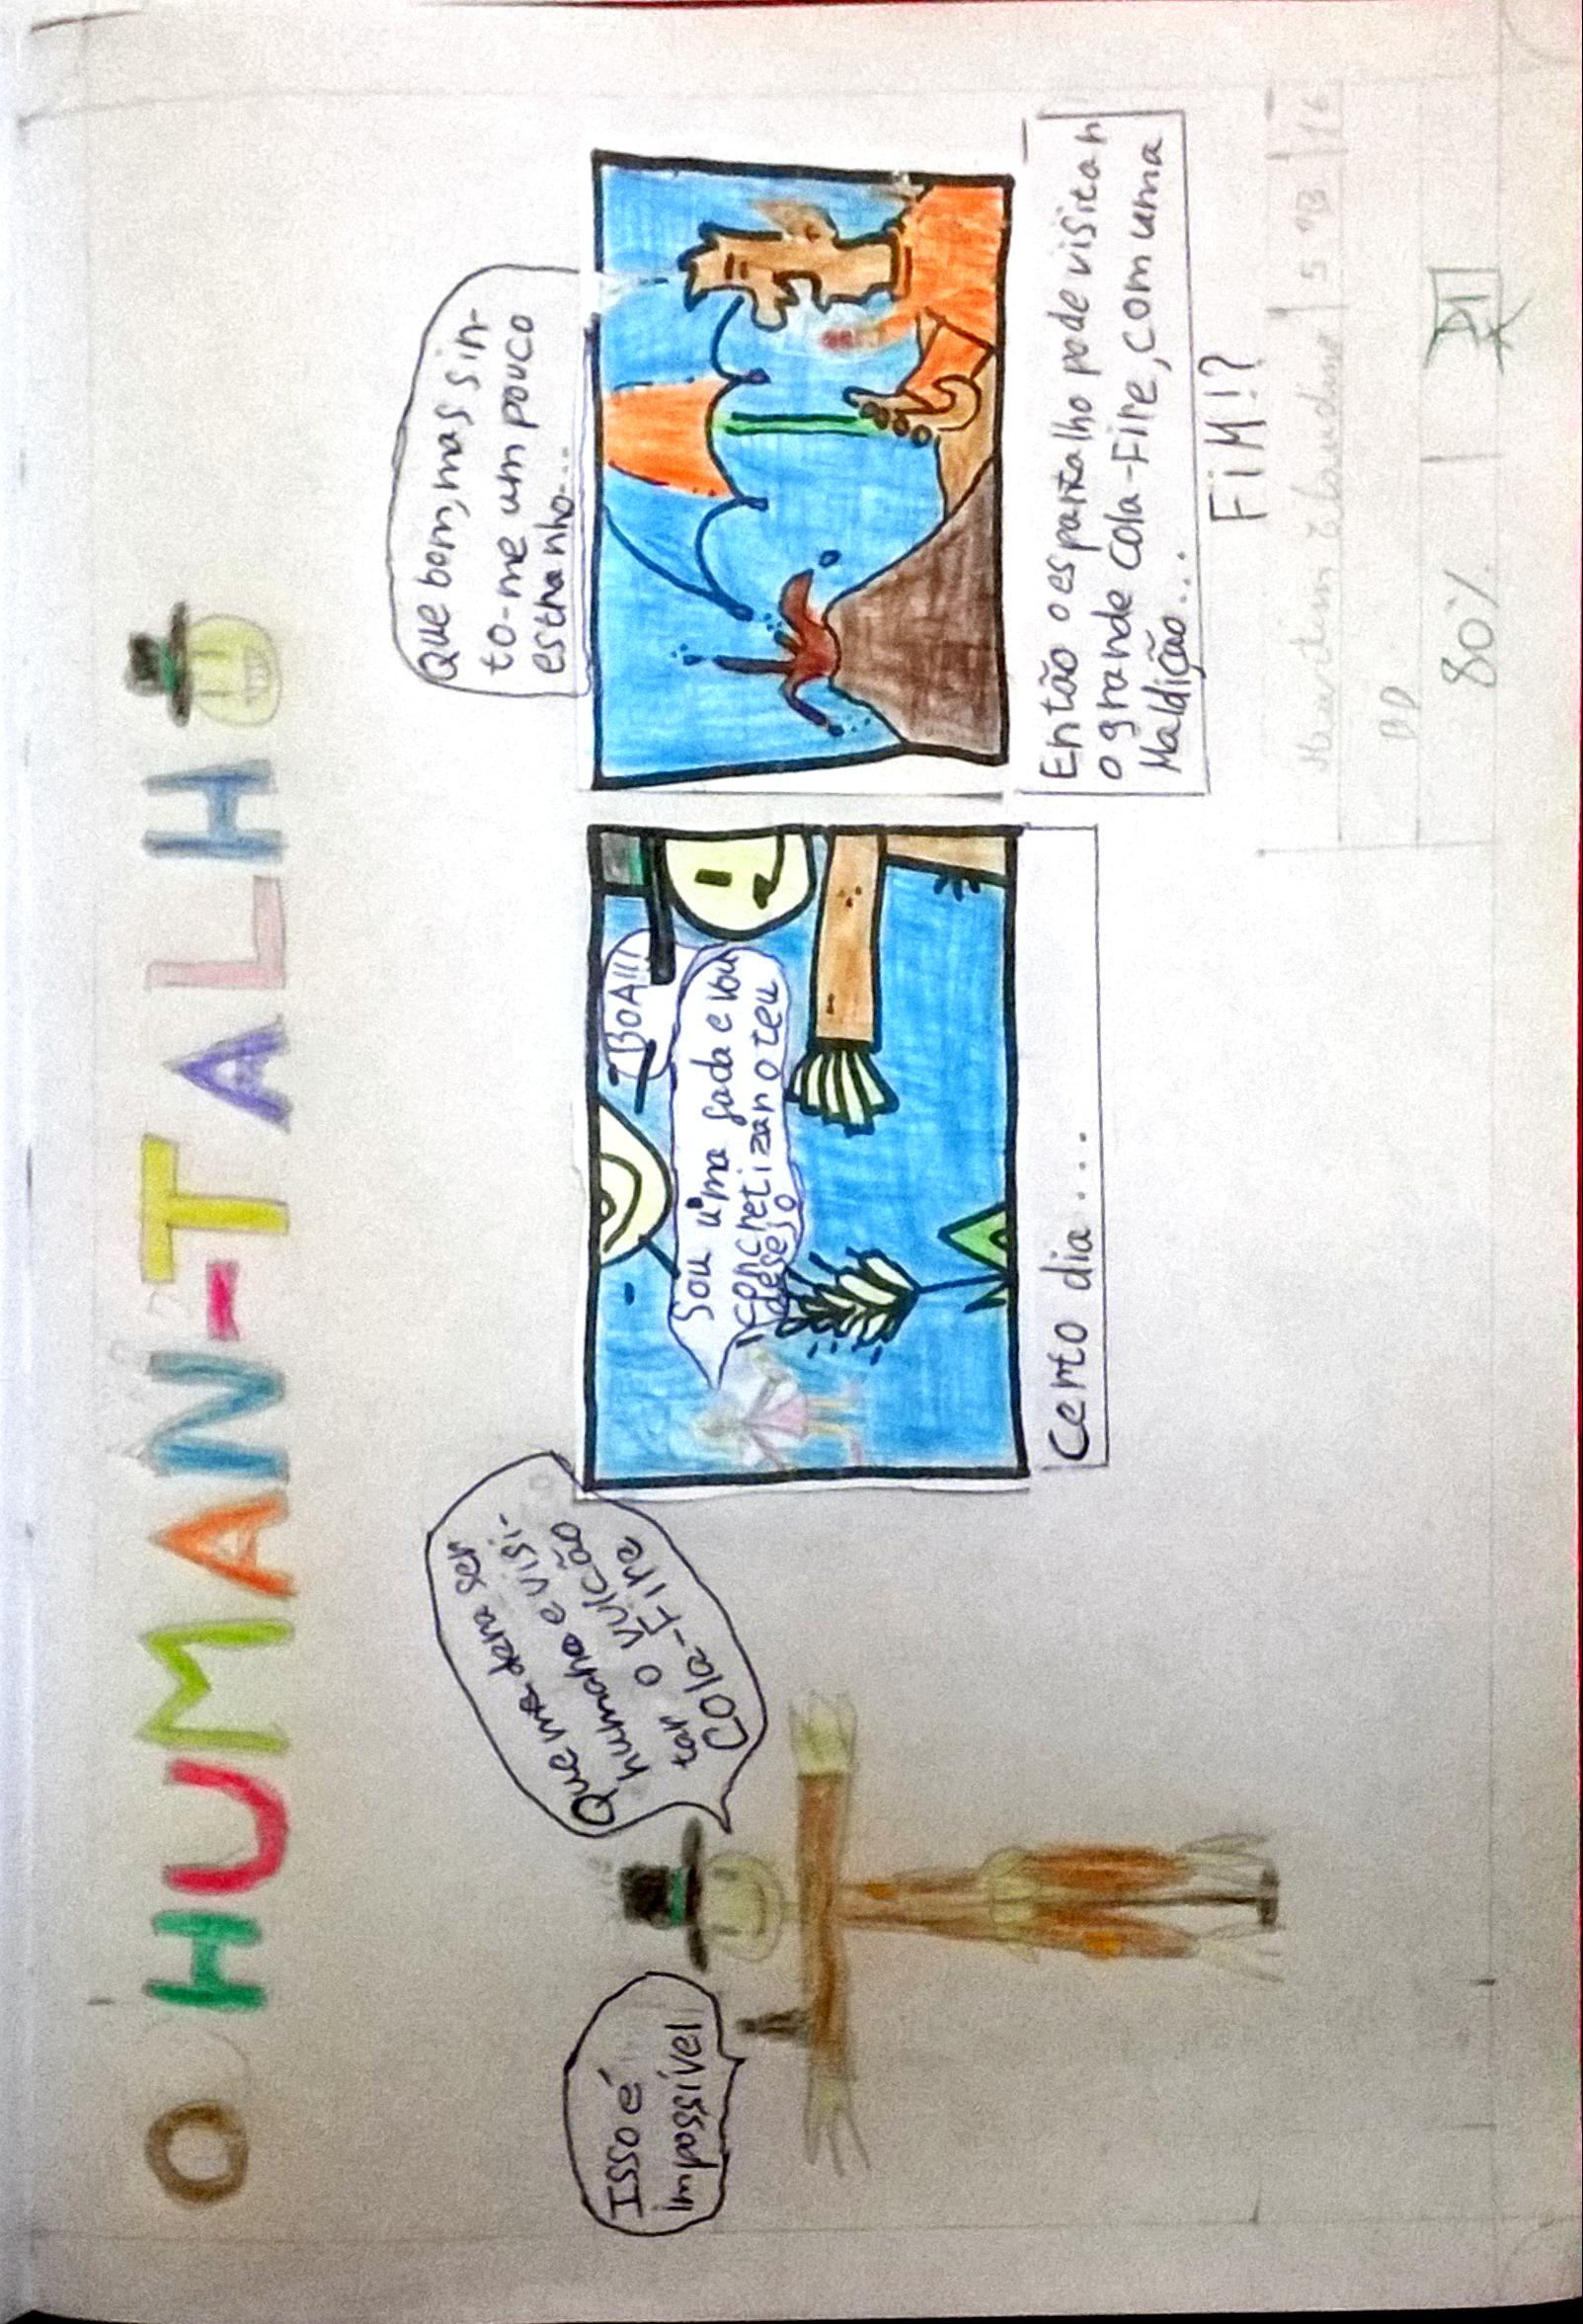 O HUMAN-TALHO
Isso é
impossível
Quem me dera ser
humano e visi-
tar o vulcão
Cola-Fire
BOA!!!
Sou uma fada e vou
concretizar o teu
desejo
Certo dia....
Que bom, mas sin-
to-me um pouco
estranho...
Então o espantalho pode visitar
o grande Cola-Fire, com uma
Maldição...
FiM!?
5ºB 16
BD
80%